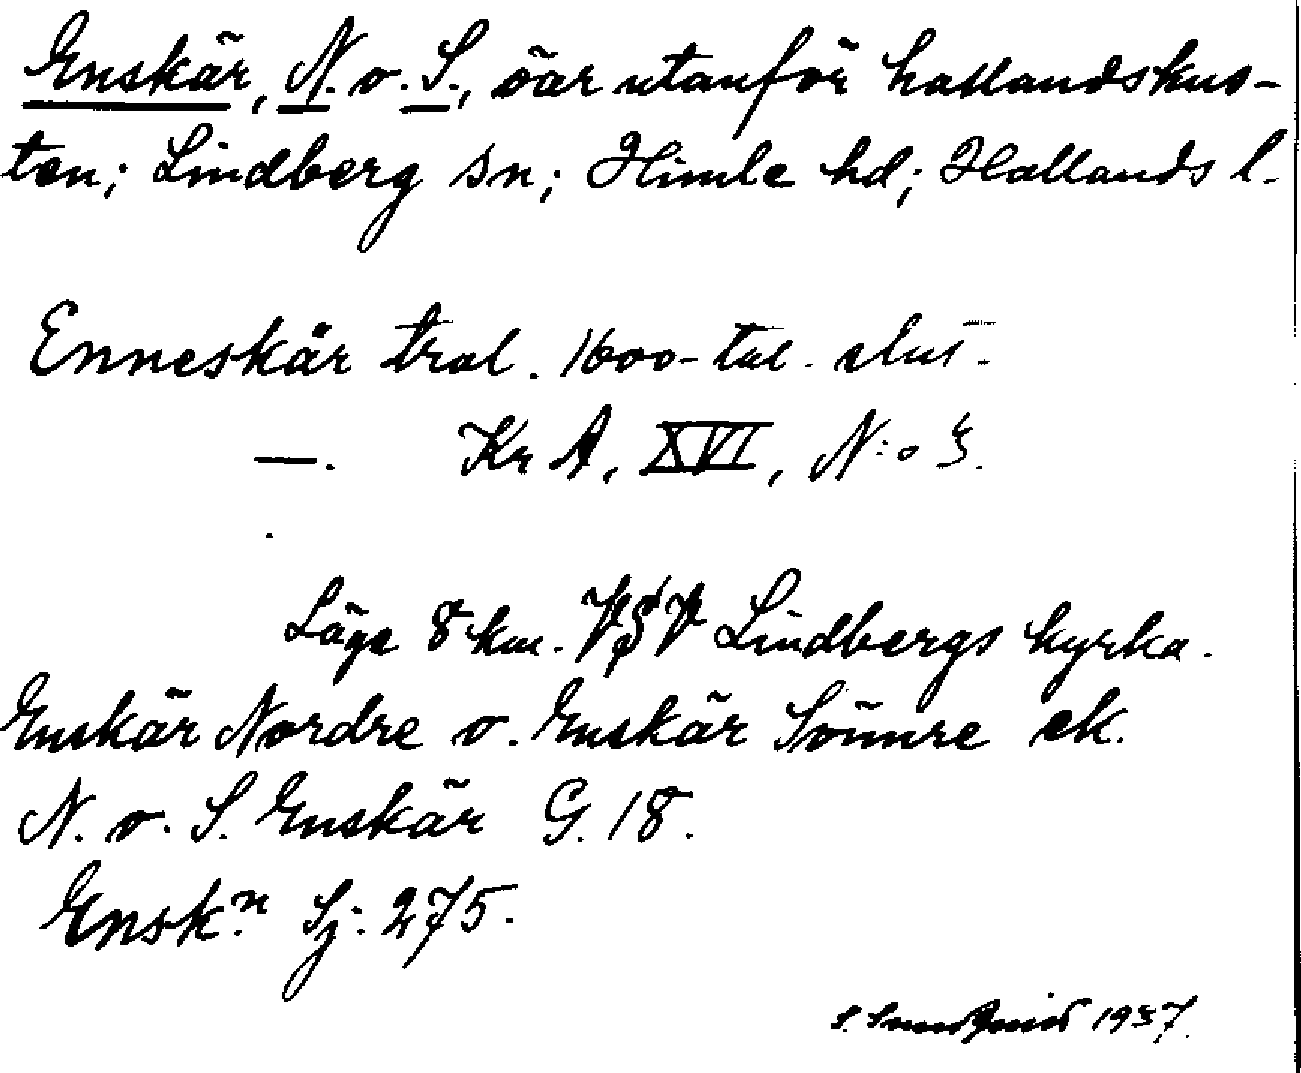 Enskär, N. o. S., öar utanför hallandskus-
ten; Lindberg sn; Himle hd; Hallands l.
Enneskär tral. 1600-tal. slut.
—. Kr A, XVI, N:o 3.
Läge 8 km. VSV Lindbergs kyrka.
Enskär Nordre o. Enskär Sönnre ek.
N. o. S. Enskär G. 18.
Ensk:n Sj: 275.
S. 1937.